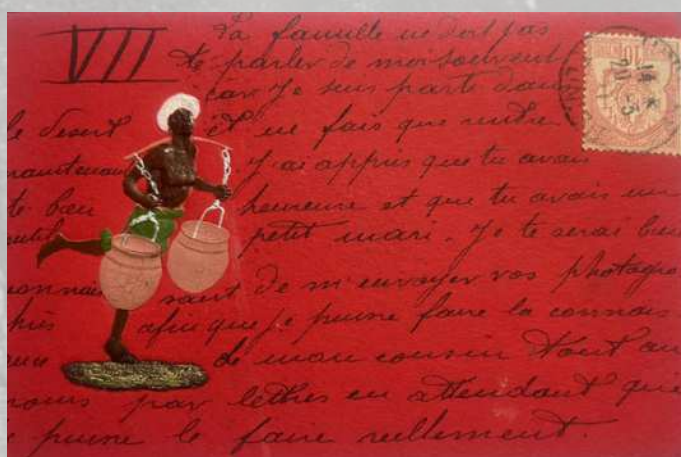 VII
Ta famille ne doit pas
te parler de moi souvent
car Je suis parti dans
le desert et ne fais que
maintenant J'ai appris que tu avais
été bien heureuse et que tu avais un
petit mari. Je te serai bien
onnais sant de m'envoyer vos photogra
phies afin que je puisse faire la connais
de mon cousin tout au
moins par lettres en attendant que
puisse le faire reellement.
10